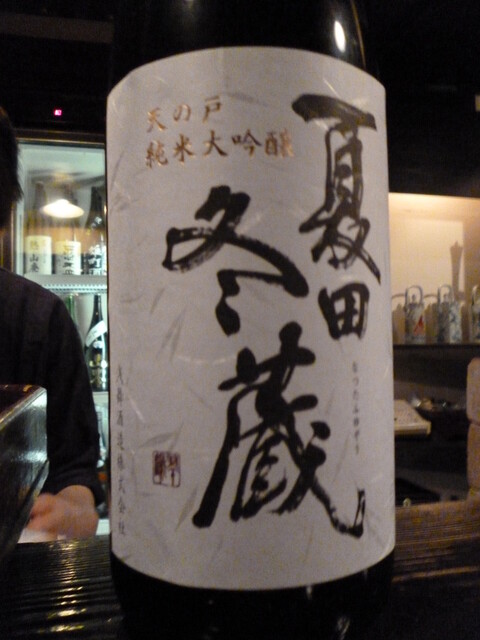 天の戸
純米大吟醸
夏田
冬蔵
なつたふゆぞう
浅舞酒造株式会社